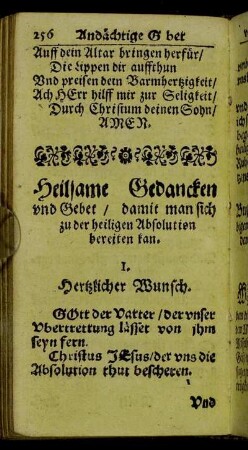 256 Andächtige G bet
Auff dein Altar bringen herfür/
Die Lippen dir auffthun
Vnd preisen dein Barmhertzigkeit/
Ach HErr hilff mir zur Seligkeit/
Durch Christum deinen Sohn/
AMEN.
Heilsame Gedancken
vnd Gebet / damit man sich
zu der heiligen Absolution
bereiten kan.
I.
Hertzlicher Wunsch.
GOtt der Vatter / der vnser
Vbertrettung lässet von jhm
seyn fern.
Christus JEsus/der vns die
Absolution thut bescheren.
Vnd